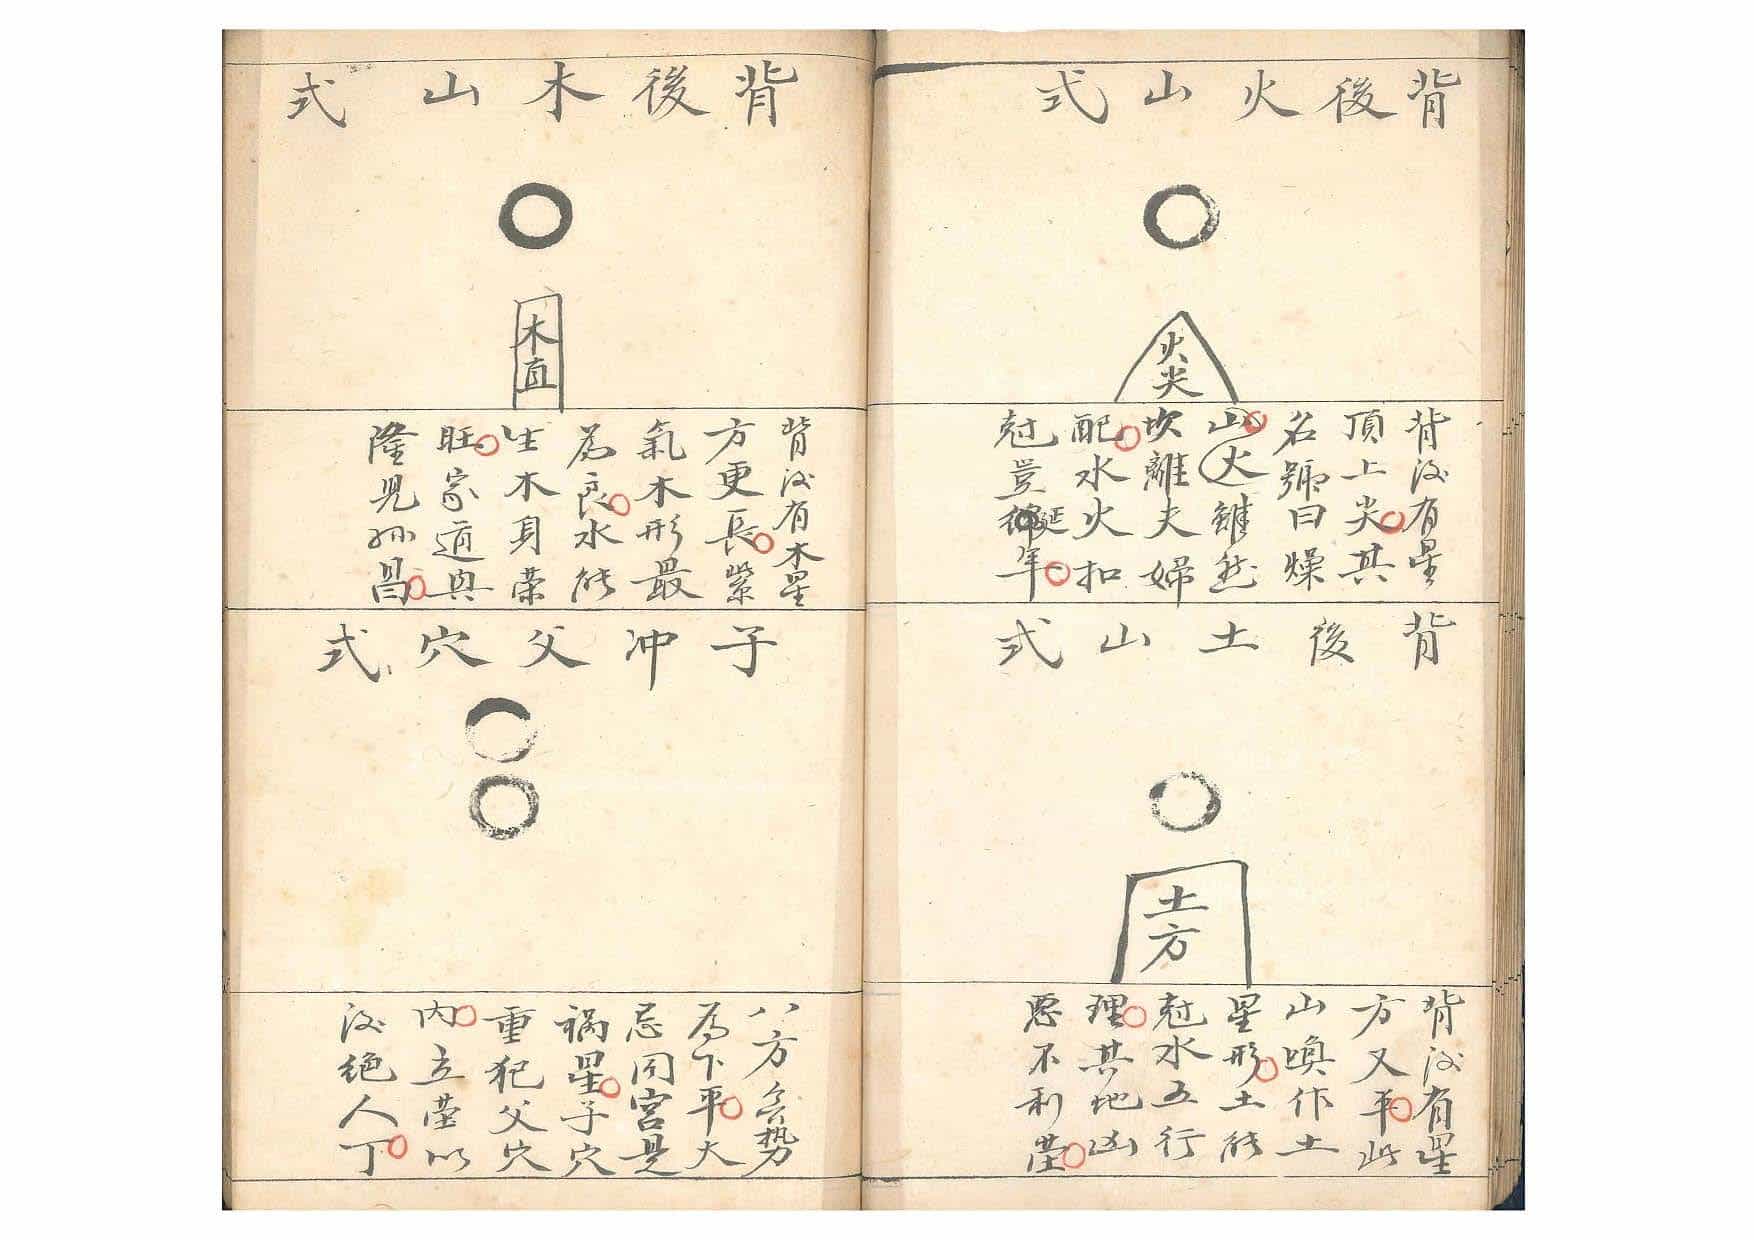 背後火山式
火尖
背後有星
頂上尖其
名號曰燥
山火雖然
坎離夫婦
配水火扣
尅豈延年
背後土山式
土方
背後有星
方又平此
山喚作土
星形土能
尅水五行
理其地凶
惡不利塋
背後木山式
木直
背後有木星
方更長紫
氣木形最
為良水能
生木身荣
旺家道興
隆児孫昌
子冲父穴式
八方勢
為下平大
忌同宮是
禍星子穴
重犯父穴
内立塋以
後絕人丁